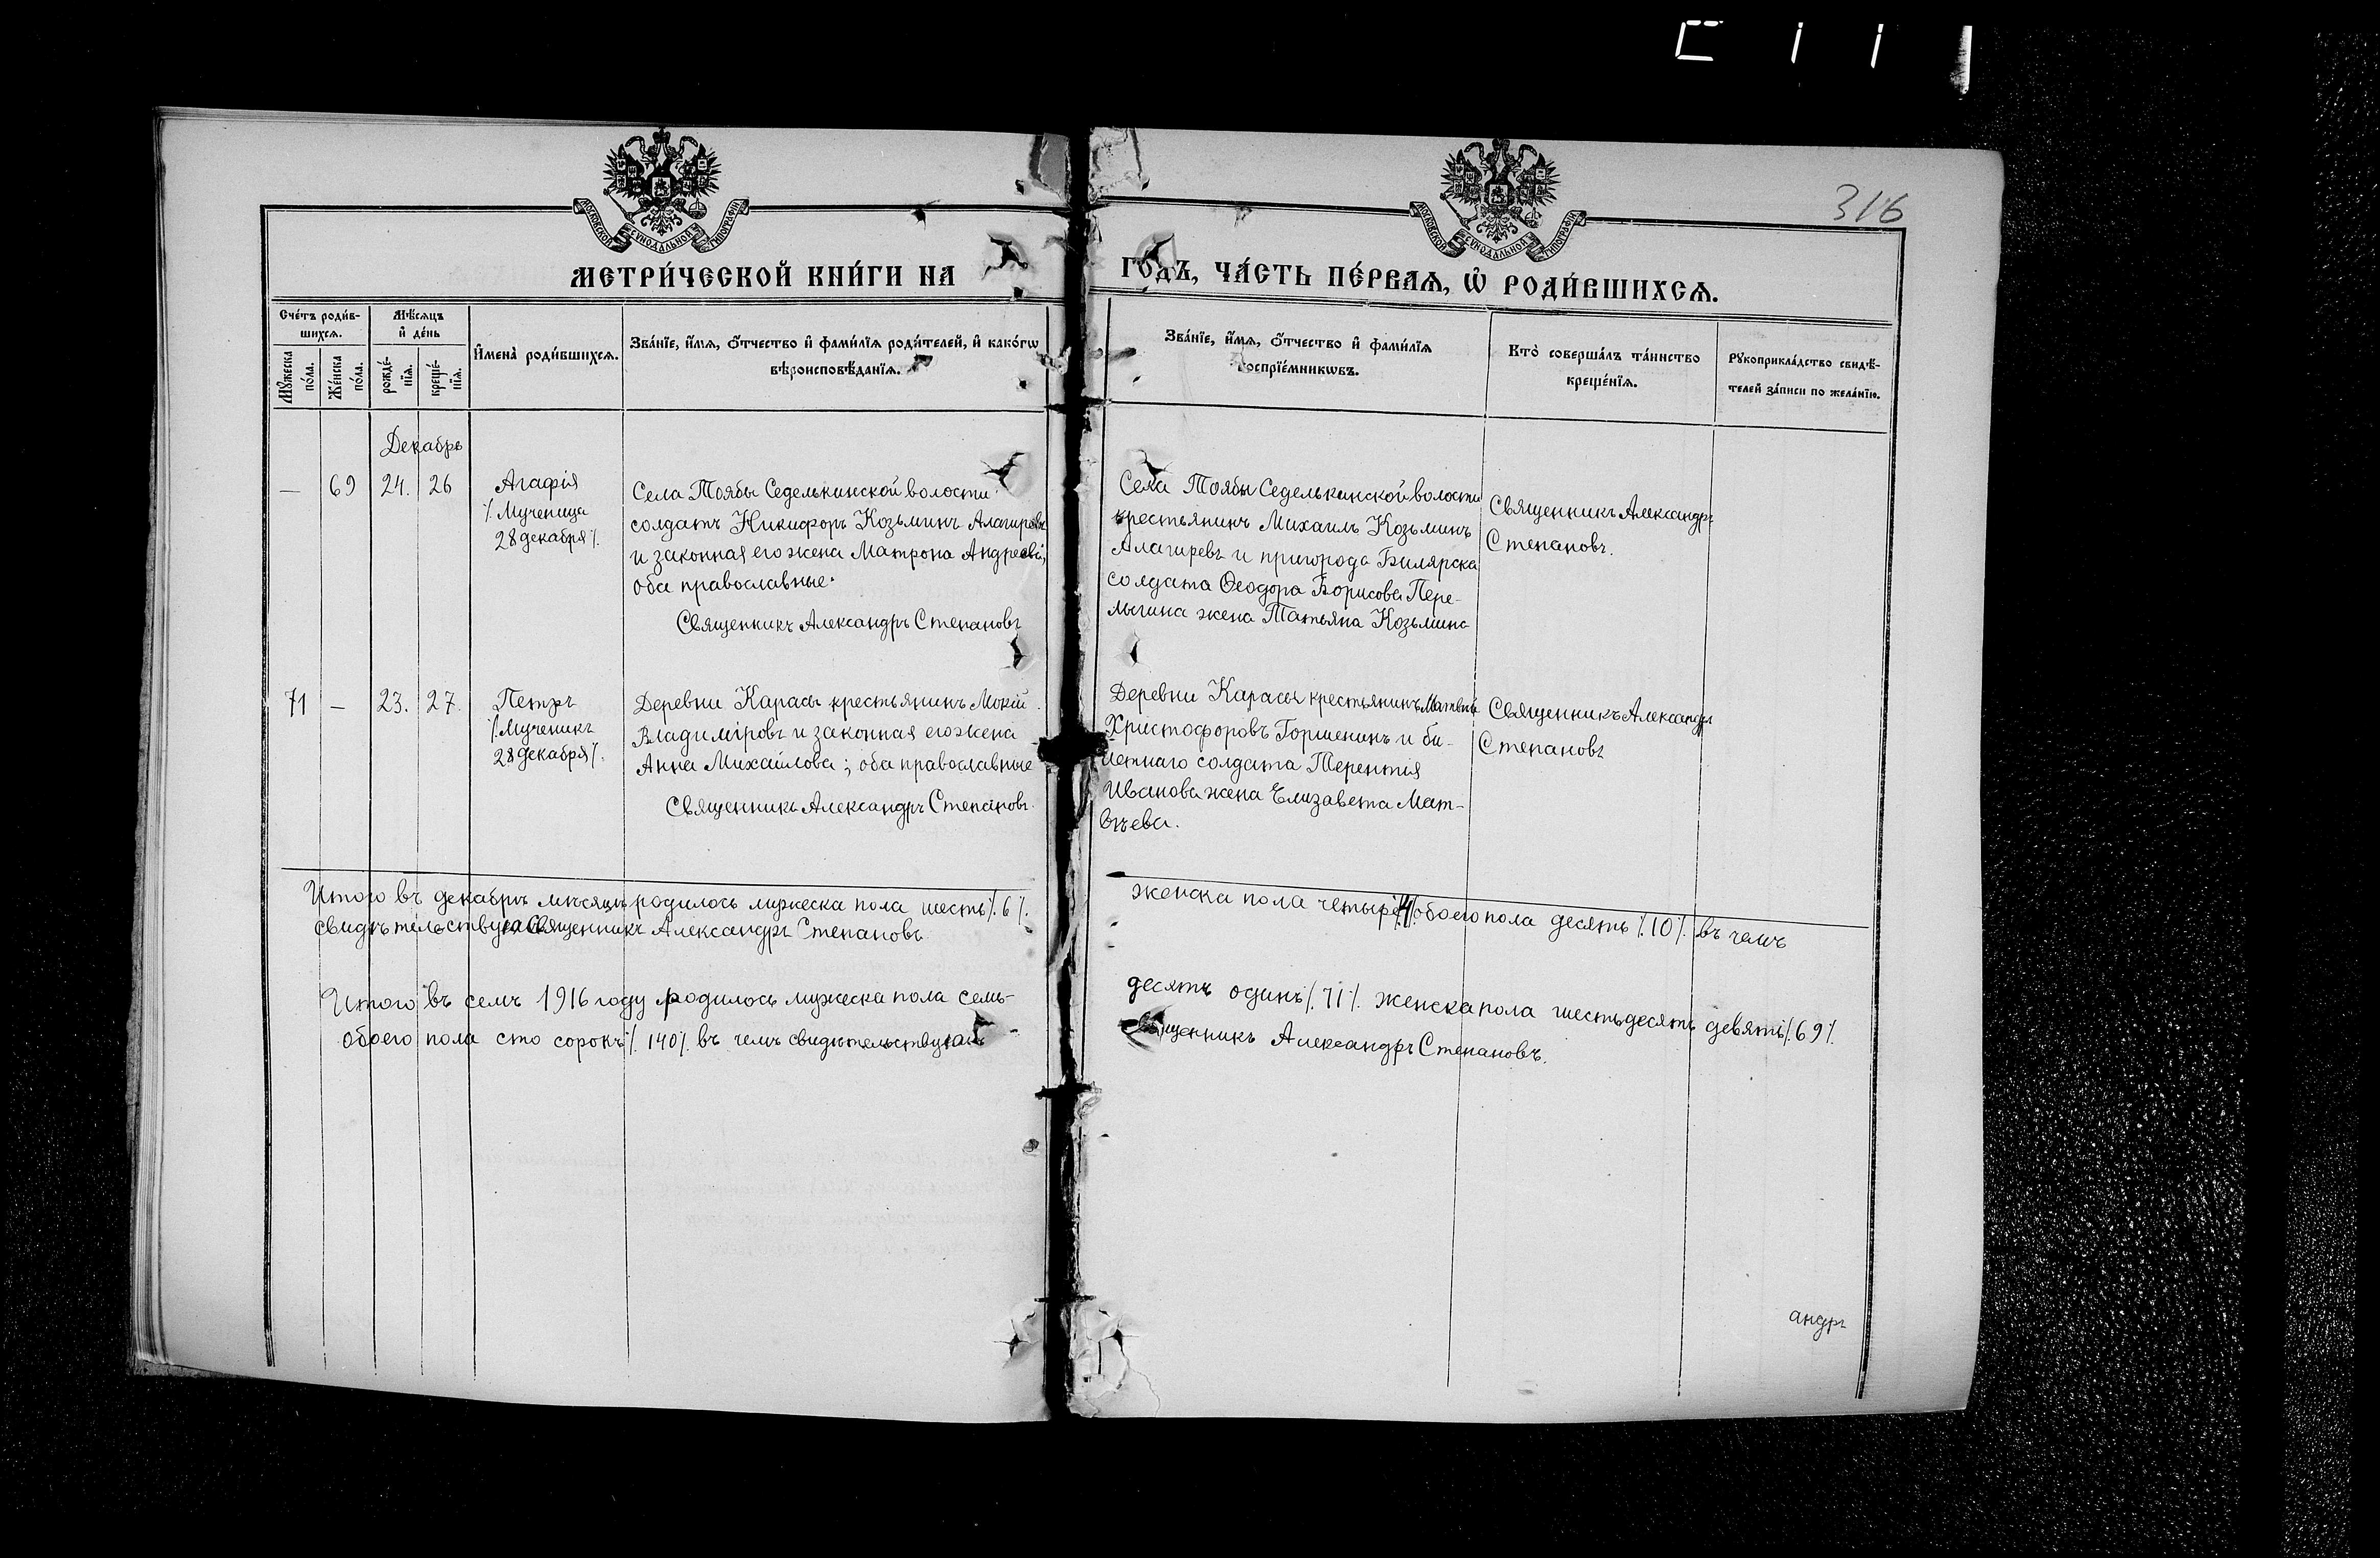 316
МОСКОВСКОЙ СѴНОДАЛЬНОЙ ТИПОГРАФІИ
МОСКОВСКОЙ СѴНОДАЛЬНОЙ ТИПОГРАФІИ
МЕТРИ́ЧЕСКОЙ КНИ́ГИ НА
ГОДЪ, ЧА́СТЬ ПЕ́РВАѦ, Ѡ҆ РОДИ́ВШИХСѦ.
Сче́тъ роди́в-
шихсѧ.
Мѣ́сѧцъ
и҆ де́нь
Мꙋ́жеска
по́ла.
Же́нска
по́ла.
рожде́-
нїѧ.
креще́-
нїѧ.
И҆мена̀ роди́вшихсѧ.
Зва́нїе, и҆́мѧ, ѻ҆́тчество и҆ фами́лїѧ роди́телей, и҆ како́гѡ
вѣроисповѣ́данїѧ.
Зва́нїе, и҆́мѧ, ѻ҆́тчество и҆ фами́лїѧ
воспрїе́мникѡвъ.
Кто̀ соверша́лъ та́инство
креще́нїѧ.
Рꙋкоприкла́дство свидѣ́-
телей за́писи по жела́нїю.
Декабрь
— 69 24. 26
Агафія
/. Мученица
28 декабря /.
Села Тоябы Седелькинской волости
солдатъ Никифоръ Козьминъ Алагиревъ
и законная его жена Матрона Андреева,
оба православные.
Священникъ Александръ Степановъ
Села Тоябы Седелькинской волости
крестьянинъ Михаилъ Козьминъ
Алагиревъ и пригорода Билярска
солдата Ѳеодора Борисова Пере-
лыгина жена Татьяна Козьмина
Священникъ Александръ
Степановъ.
71 — 23. 27.
Петръ
/. Мученикъ
28 декабря /.
Деревни Карасы крестьянинъ Мокій
Владиміровъ и законная его жена
Анна Михайлова; оба православные
Священникъ Александръ Степановъ.
Деревни Карасы крестьянинъ Матвѣй
Христофоровъ Горшенинъ и би-
летнаго солдата Терентія
Иванова жена Елизавета Мат-
вѣева.
Священникъ Александръ
Степановъ
Итого въ декабрѣ мѣсяцѣ родилось мужеска пола шесть /. 6 /.
женска пола четыре /. 4 /. обоего пола десять /. 10 /. въ чемъ
свидѣтельствую Священникъ Александръ Степановъ
Итого въ семъ 1916 году родилось мужеска пола семь-
десятъ одинъ /. 71 /. женска пола шестьдесятъ девять /. 69 /.
обоего пола сто сорокъ /. 140 /. въ чемъ свидѣтельствую
Священникъ Александръ Степановъ.
андръ